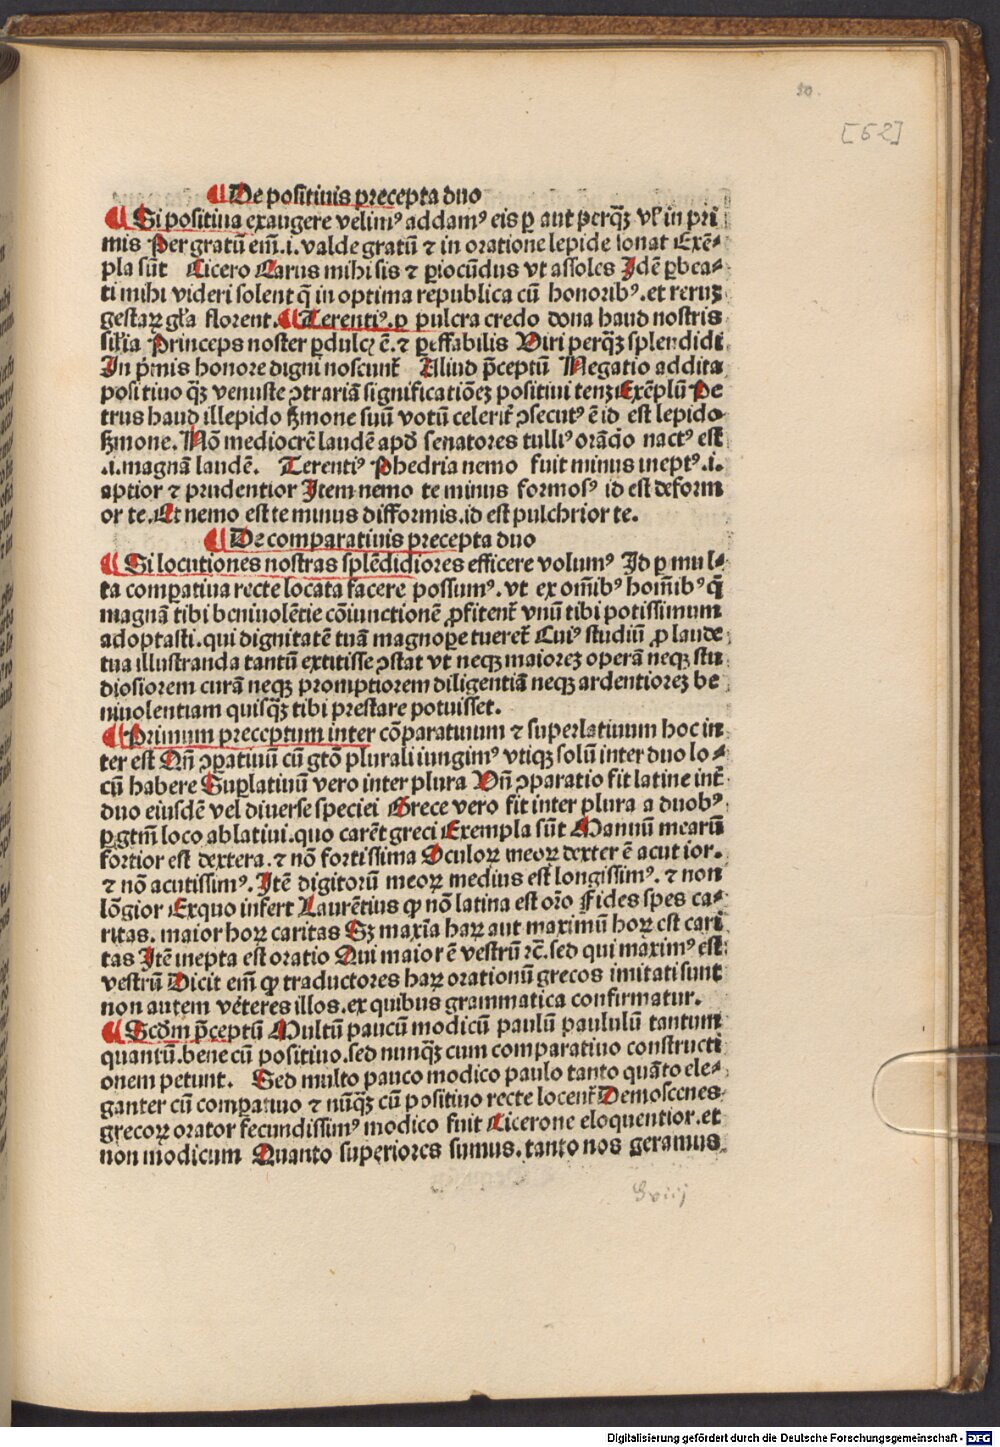 30.
[52]
¶ De positiuis precepta duo
¶ Si positiua exaugere velimꝰ addamꝰ eis ꝑ aut perqꝫ vl' in pri
mis Per gratū em̄ .i. valde gratū ⁊ in oratione lepide sonat Exē⸗
pla sūt Cicero Carus mihi sis ⁊ ꝑiocūdus vt assoles Idē ꝑbea⸗
ti mihi videri solent q̄ in optima republica cū honoribꝰ .et rerum
gestaꝝ gl'a florent. ¶ Terentiꝰ .ꝑ pulcra credo dona haud nostris
sil'ia Princeps noster ꝑdulcꝭ ē. ⁊ ꝑeffabilis Viri perqꝫ splendidi
In pⁱmis honore digni noscunt᷑ Aliud p̄ceptū Negatio addita
positiuo qꝫ venuste ꝯtrariā significatiōeꝫ positiui tenꝫ Exēplū Pe
trus haud illepido ẜmone suū votū celerit᷑ ꝯsecutꝰ ē id est lepido
ẜmone. Nō mediocrē laudē apd̓ senatores tulliꝰ orādo nactꝰ est
.i. magnā laudē. Terentiꝰ Phedria nemo fuit minus ineptꝰ .i.
aptior ⁊ prudentior Item nemo te minus formosꝰ id est deform
or te. Et nemo est te minus difformis. id est pulchrior te.
¶ De comparatiuis precepta duo
¶ Si locutiones nostras splēdidiores efficere volumꝰ Id ꝑ mul⸗
ta comꝑatiua recte locata facere possumꝰ . vt ex om̄ibꝰ hom̄ibꝰ q̄
magnā tibi beniuolētie cōiunctionē ꝓfitent᷑ vnū tibi potissimum
adoptasti. qui dignitatē tuā magnoꝑe tueret᷑ Cuiꝰ studiū ꝓ laude
tua illustranda tantū extitisse ꝯstat vt neqꝫ maioreꝫ operā neqꝫ stu
diosiorem curā neqꝫ promptiorem diligentiā neqꝫ ardentioreꝫ be
niuolentiam quisqꝫ tibi prestare potuisset.
¶ Primum preceptum inter cōparatiuum ⁊ superlatiuum hoc in
ter est Qn̄ ꝯꝑatiuū cū gtō plurali iungimꝰ vtiqꝫ solū inter duo lo⸗
cū habere Suꝑlatiuū vero inter plura Vn̄ ꝯparatio fit latine int᷑
duo eiusdē vel diuerse speciei Grece vero fit inter plura a duobꝰ
ꝑ gtm̄ loco ablatiui. quo carēt greci Exempla sūt Manuū mearū
fortior est dextera. ⁊ nō fortissima Oculoꝝ meoꝝ dexter ē acutior.
⁊ nō acutissimꝰ. Itē digitorū meoꝝ medius est longissimꝰ. ⁊ non
lōgior Exquo infert Laurētius ꝙ nō latina est oro̅ Fides spes ca⸗
ritas. maior hoꝝ caritas Sꝫ maxīa haꝝ aut maximū hoꝝ est cari
tas Itē inepta est oratio Qui maior ē vestrū ⁊c̄. sed qui maximꝰ est
vestrū Dicit em̄ ꝙ traductores haꝝ orationū grecos imitati sunt
non autem veteres illos. ex quibus grammatica confirmatur.
¶ Scdm̄ p̄ceptū Multū paucū modicū paulū paululū tantum
quantū. bene cū positiuo. sed nunqꝫ cum comparatiuo constructi
onem petunt. Sed multo pauco modico paulo tanto quāto ele⸗
ganter cū comꝑatiuo ⁊ nūqꝫ cū positiuo recte locent᷑ Demoscenes
grecoꝝ orator fecundissimꝰ modico fuit Cicerone eloquentior. et
non modicum Quanto superiores sumus. tanto nos geramus
Gviij
Digitalisierung gefördert durch die Deutsche Forschungsgemeinschaft - DFG